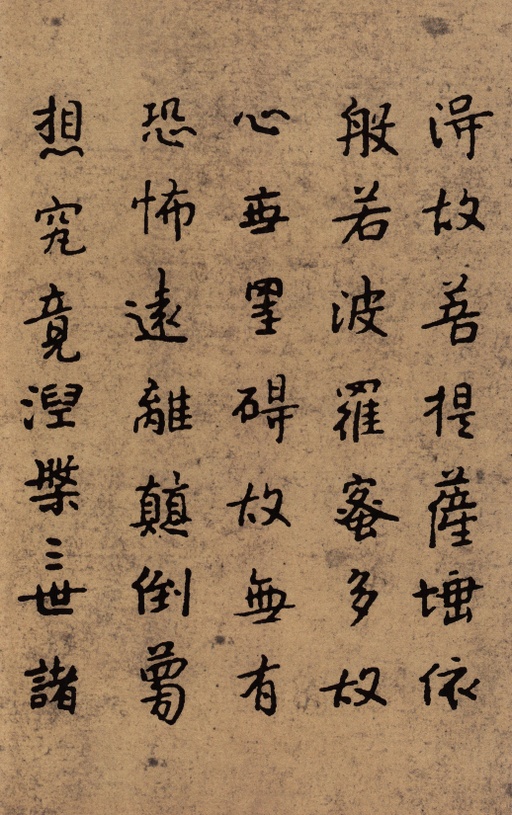 得故菩提薩埵依
般若波羅蜜多故
心無罣碍故無有
恐怖遠離顛倒夢
想究竟涅槃三世諸